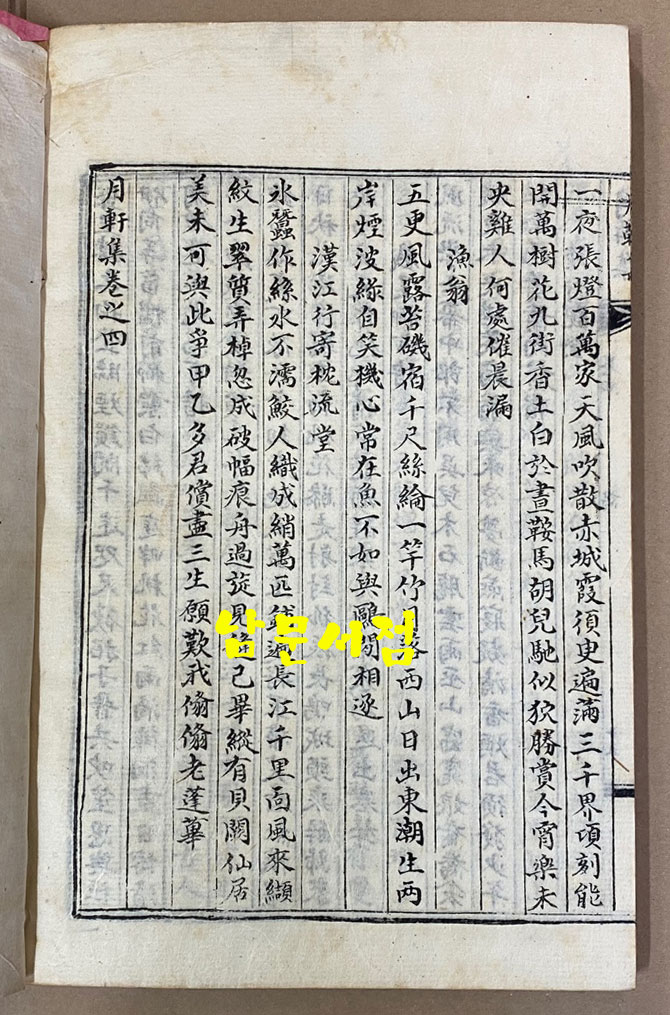 一夜張燈百萬家天風吹散赤城霞須臾遍滿三千界頃刻能
開萬樹花九街香土白於晝鞍馬胡兒馳似狖勝賞今宵樂未
央雞人何處催晨漏
漁翁
五更風露苔磯宿千尺絲綸一竿竹月落西山日出東潮生兩
岸煙波綠自笑機心常在魚不如與鷗閑相逐
漢江行寄枕流堂
氷蠶作絲水不濡鮫人織成綃萬匹鋪遍長江千里面風來纈
紋生翠質弄棹忽成破幅痕舟過旋見縫已畢縱有貝闕仙居
美未可與此爭甲乙多君償盡三生願歎我偸偸老蓬蓽
月軒集卷之四
남문서점